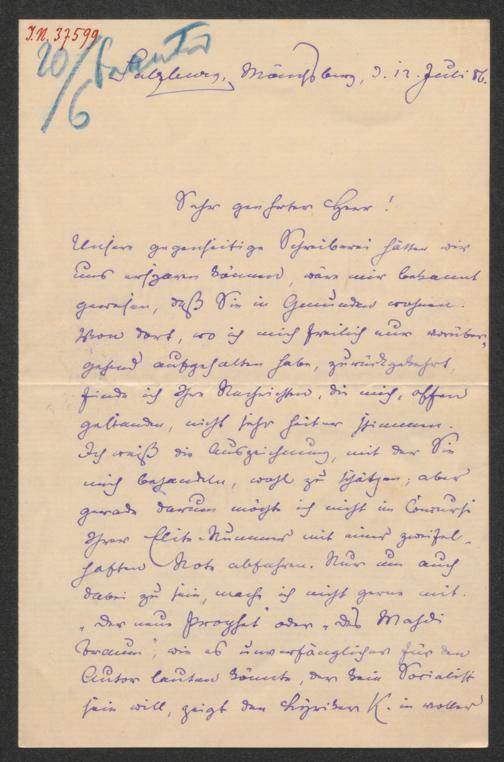 I.N. 37599
20/6
Salzburg, Mönchsberg, d. 12. Juli 86.
Sehr geehrter Herr!
Unsere gegenseitige Schreiberei hätten wir
uns ersparen können, wäre mir bekannt
gewesen, daß Sie in Gmunden wohnen.
Von dort, wo ich mich freilich nur vorüber-
gehend aufgehalten habe, zurückgekehrt,
finde ich Ihre Nachrichten, die mich, offen
gestanden, nicht sehr heiter stimmen.
Ich weiß die Auszeichnung, mit der Sie
mich behandeln, wohl zu schätzen; aber
gerade darum möchte ich nicht im Concurs
Ihrer Elite-Nummer mit einer zweifel-
haften Note abfahren. Nur um auch
dabei zu sein, mache ich nicht gerne mit.
"Der neue Prophet" oder "Des Mahdi
Traum", wie es unverfänglicher für den
Autor lauten könnte, der kein Socialist
sein will, zeigt den Lyriker K. in voller